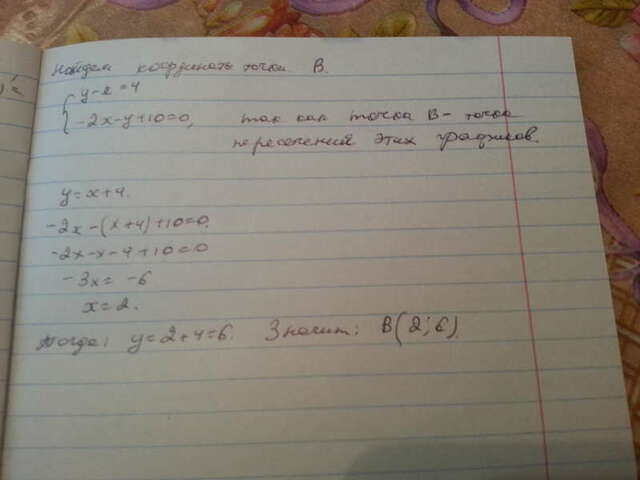 Найдем координаты точки В.
{ y-x=4
-2x-y+10=0, так как точка В- точка
пересечения этих графиков.
y=x+4.
-2x-(x+4)+10=0
-2x-x-4+10=0
-3x=-6
x=2.
Тогда: y=2+4=6. Значит: В(2;6).